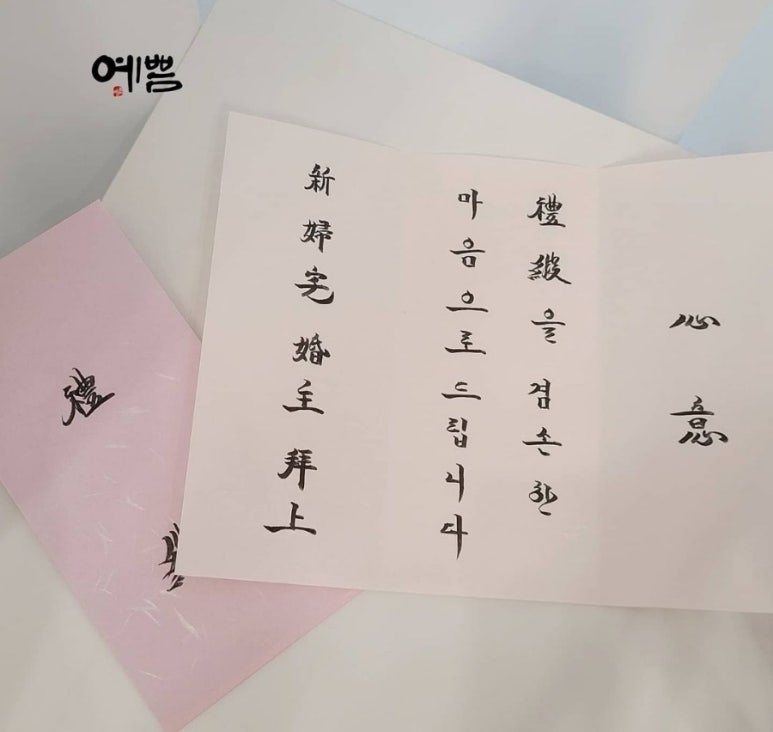 예쁨
心意
禮緞을 겸손한
마음으로 드립니다
新婦宅 婚主 拜上
禮